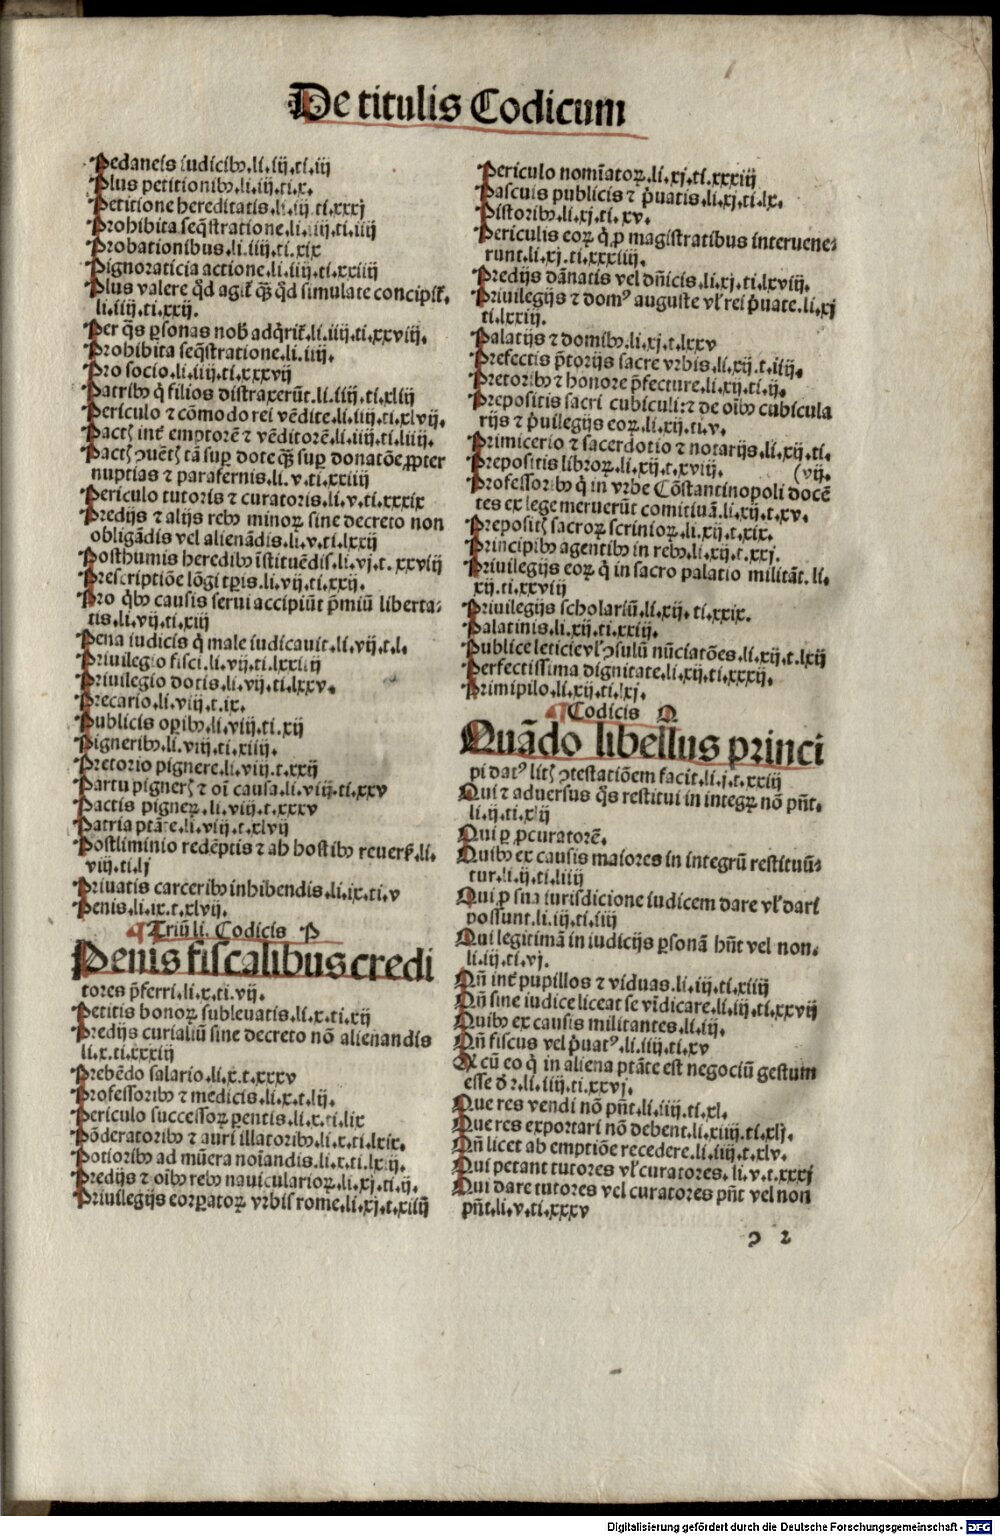 De titulis Codicum
Pedaneis iudicibꝰ.li.iij.ti.iij
Plus petitionibꝰ.li.iij.ti.x.
Petitione hereditatis.li.iij.ti.xxxj
Prohibita seq̄stratione.li.iiij.ti.iiij
Probationibus.li.iiij.ti.xix
Pignoraticia actione.li.iiij.ti.xxiiij
Plus valere qď agit̄ q̄ꝫ qď simulate concipit̄.
li.iiij.ti.xxij.
Per q̄s ꝑsonas nob̄ adq̇rit̄.li.iiij.ti.xxviij.
Prohibita seq̄stratione.li.iiij.
Pro socio.li.iiij.ti.xxxvij
Patribꝰ q̇ filios distraxerūt.li.iiij.ti.xliij
Periculo ⁊ cōmodo rei vēdite.li.iiij.ti.xlvij.
Pactꝭ int̄ emptorē ⁊ vēditorē.li.iiij.ti.liiij.
Pactꝭ ꝯuētꝭ tā suꝑ dote q̄ꝫ suꝑ donatōe ꝓpter
nuptias ⁊ parafernis.li.v.ti.xxiiij
Periculo tutoris ⁊ curatoris.li.v.ti.xxxix
Predijs ⁊ alijs rebꝰ minoꝝ sine decreto non
obligādis vel alienādis.li.v.ti.lxxij
Posthumis heredibꝰ īstituēdis.li.vj.t.xxviij
Prescriptiōe lōgi tꝑis.li.vij.ti.xxij.
Pro q̇bꝰ causis serui accipiūt p̄miū liberta⸗
tis.li.vij.ti.xiij
Pena iudicis q̇ male iudicauit.li.vij.t.l.
Priuilegio fisci.li.vij.ti.lxxiiij
Priuilegio dotis.li.vij.ti.lxxv.
Precario.li.viij.t.ix.
Publicis oꝑibꝰ.li.viij.ti.xij
Pigneribꝰ.li.viij.ti.xiiij.
Pretorio pignere.li.viij.t.xxij
Partu pignerꝭ ⁊ oī causa.li.viij.ti.xxv
Pactis pigneꝝ.li.viij.t.xxxv
Patria ptāte.li.viij.t.xlvij
Postliminio redēptis ⁊ ab hostibꝰ reuers̄.li.
viij.ti.lj
Priuatis carceribꝰ inhibendis.li.ix.ti.v
Penis.li.ix.t.xlvij.
¶Triū li. Codicis P
Penis fiscalibus credi
tores p̄ferri.li.x.ti.vij.
Petitis bonoꝝ sublevatis.li.x.ti.xij
Predijs curialiū sine decreto nō alienandis
li.x.ti.xxxiij
Prebēdo salario.li.x.t.xxxv
Professoribꝰ ⁊ medicis.li.x.t.lij.
Periculo successoꝝ ꝑentis.li.x.ti.lix
Pōderatoribꝰ ⁊ auri illatoribꝰ.li.x.ti.lxix.
Potioribꝰ ad mūera noīandis.li.x.ti.lxvij.
Predijs ⁊ oībꝰ rebꝰ nauiculariorꝝ.li.xj.ti.ij.
Priuilegijs eorꝑatoꝝ vrbis rome.li.xj.t.xiiij
Periculo nomīatoꝝ.li.xj.ti.xxxiij
Pascuis publicis ⁊ ṗuatis.li.xj.ti.lx.
Pistoribꝰ.li.xj.ti.xv.
Periculis eoꝝ q̇ ꝓ magistratibus interuene⸗
runt.li.xj.ti.xxxiiij.
Predijs dānatis vel dn̄icis.li.xj.ti.lxviij.
Priuilegijs ⁊ domꝰ auguste vl̄ rei ṗuate.li.xj
ti.lxxiij.
Palatijs ⁊ domibꝰ.li.xj.t.lxxv
Prefectis p̄torijs sacre vrbis.li.xij.t.iiij.
Pretoribꝰ ⁊ honore p̄fecture.li.xij.ti.ij.
Prepositis sacri cubiculi:⁊ de oībꝰ cubicula
rijs ⁊ ṗuilegijs eoꝝ.li.xij.ti.v.
Primicerio ⁊ sacerdotio ⁊ notarijs.li.xij.ti.
Prepositis libroꝝ.li.xij.t.xviij. (vij.
Professoribꝰ q̇ in vrbe Cōstantinopoli docē
tes ex lege meruerūt comitiuā.li.xij.t.xv.
Prepositꝭ sacroꝝ scrinioꝝ.li.xij.t.xix.
Principibꝰ agentibꝰ in rebꝰ.li.xij.t.xxj.
Priuilegijs eoꝝ q̇ in sacro palatio militāt.li.
xij.ti.xxviij
Priuilegijs scholariū.li.xij.ti.xxix.
Palatinis.li.xij.ti.xxiij.
Publice leticie vl̄ ꝯsulū nūciatōes.li.xij.t.lxij
Perfectissima dignitate.li.xij.ti.xxxij.
Primipilo.li.xij.ti.lxj.
¶Codicis Q
Quādo libellus princi
pi datꝰ litꝭ ꝯtestatiōem facit.li.j.t.xxiij
Qui ⁊ adversus q̄s restitui in integꝝ nō pn̄t.
li.ij.ti.xlij
Qui ꝑ ꝓcuratorē.
Quibꝰ ex causis maiores in integrū restituū⸗
tur.li.ij.ti.liiij
Qui ꝓ sua iurisdicione iudicem dare vl̄ dari
possunt.li.iij.ti.iiij
Qui legitimā in iudicijs ꝑsonā hn̄t vel non.
li.iij.ti.vj.
Qn̄ int̄ pupillos ⁊ viduas.li.iij.ti.xiiij
Qn̄ sine iudice liceat se vīdicare.li.iij.ti.xxvij
Quibꝰ ex causis militantes.li.iij.
Qn̄ fiscus vel ṗuatꝰ.li.iiij.ti.xv
Q cū eo q̇ in aliena ptāte est negociū gestum
esse dꝛ.li.iiij.ti.xxvj.
Que res vendi nō pn̄t.li.iiij.ti.xl.
Que res exportari nō debent.li.xiiij.ti.xlj.
Qn̄ licet ab emptiōe recedere.li.iiij.t.xlv.
Qui petant tutores vl̄ curatores.li.v.t.xxxj
Qui dare tutores vel curatores pn̄t vel non
pn̄t.li.v.ti.xxxv
ꝯ 2
Digitalisierung gefördert durch die Deutsche Forschungsgemeinschaft - DFG